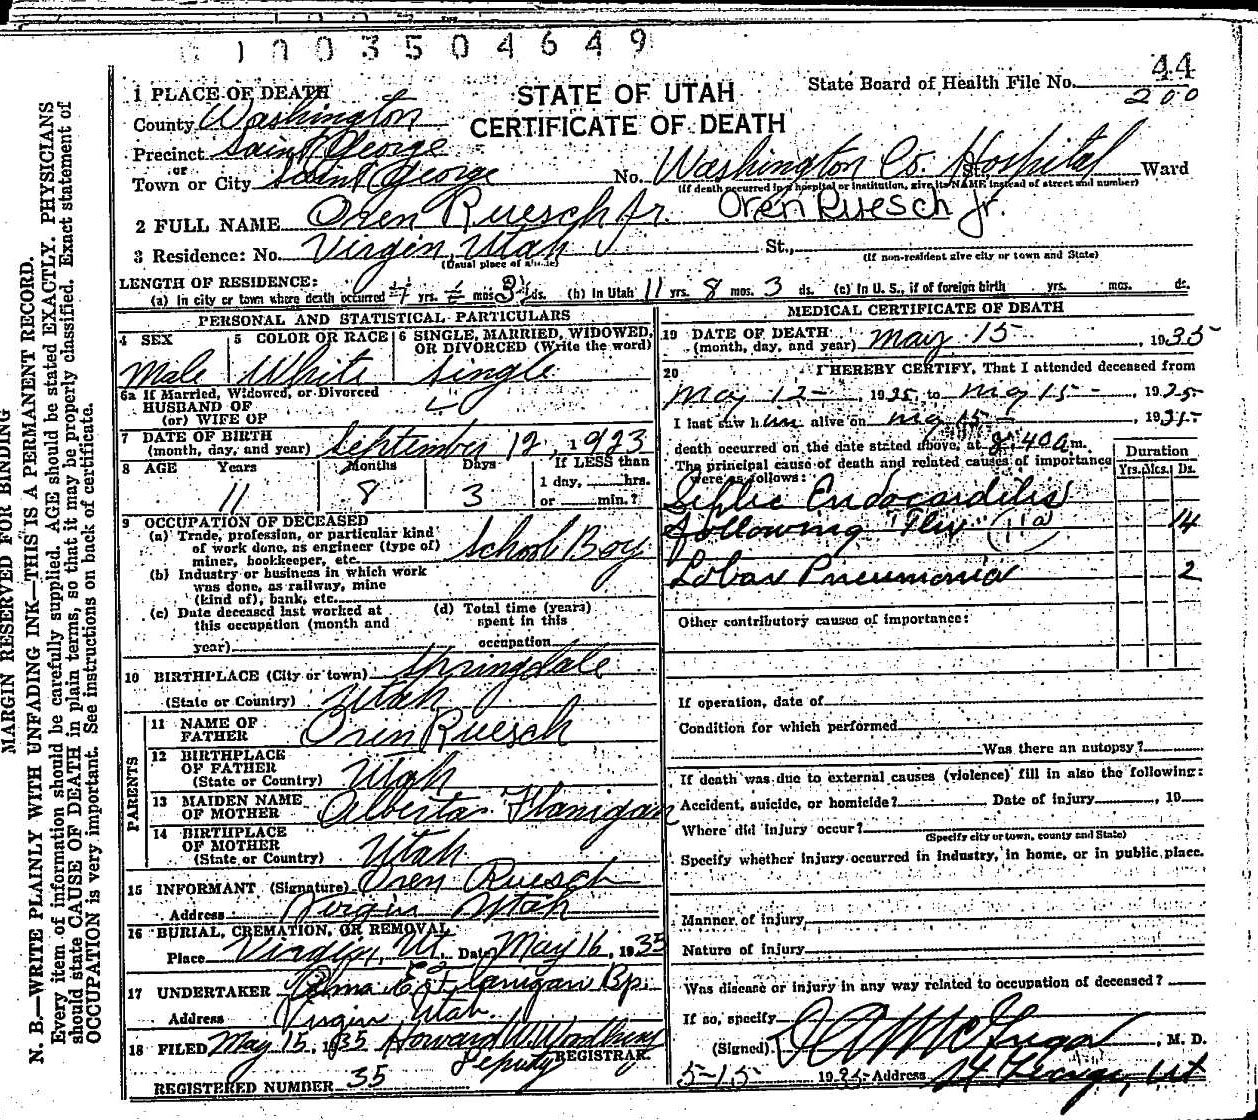 1 0 0 3 5 0 4 6 4 9
44
State Board of Health File No.
200
STATE OF UTAH
CERTIFICATE OF DEATH
1 PLACE OF DEATH
County Washington
Precinct Saint George
or
Town or City Saint George No. Washington Co. Hospital St. Ward
(If death occurred in a hospital or institution, give its NAME instead of street and number)
2 FULL NAME Oren Ruesch Jr. Oren Ruesch Jr.
3 Residence: No. Virgin, Utah St.,
(Usual place of abode) (If non-resident give city or town and State)
LENGTH OF RESIDENCE:
(a) In city or town where death occurred yrs. mos. 3 ds. (b) In Utah 11 yrs. 8 mos. 3 ds. (c) In U. S., if of foreign birth yrs. mos. ds.
PERSONAL AND STATISTICAL PARTICULARS
4 SEX 5 COLOR OR RACE 6 SINGLE, MARRIED, WIDOWED, OR DIVORCED (Write the word)
Male White Single
6a If Married, Widowed, or Divorced
HUSBAND OF
(or) WIFE OF
7 DATE OF BIRTH
(month, day, and year) September 12, 1923
8 AGE Years Months Days If LESS than
1 day, hrs.
11 8 3 or min.?
9 OCCUPATION OF DECEASED
(a) Trade, profession, or particular kind
of work done, as engineer (type of)
miner, bookkeeper, etc. School Boy
(b) Industry or business in which work
was done, as railway, mine
(kind of), bank, etc.
(c) Date deceased last worked at
this occupation (month and
year)
(d) Total time (years)
spent in this
occupation
10 BIRTHPLACE (City or town) Springdale
(State or Country) Utah
PARENTS
11 NAME OF
FATHER Oren Ruesch
12 BIRTHPLACE
OF FATHER
(State or Country) Utah
13 MAIDEN NAME
OF MOTHER Alberta Flanigan
14 BIRTHPLACE
OF MOTHER
(State or Country) Utah
15 INFORMANT (Signature) Oren Ruesch
Address Virgin Utah
16 BURIAL, CREMATION, OR REMOVAL
Place Virgin, Ut. Date May 16, 1935
17 UNDERTAKER Flanigan Bp.
Address Virgin Utah.
18 FILED May 15, 1935 Howard W. Woodbury
Deputy REGISTRAR.
REGISTERED NUMBER 35
MEDICAL CERTIFICATE OF DEATH
19 DATE OF DEATH
(month, day, and year) May 15, 1935
20 I HEREBY CERTIFY, That I attended deceased from
May 12, 1935, to May 15, 1935
I last saw him alive on May 15, 1935
death occurred on the date stated above, at 8:40 a m.
The principal cause of death and related causes of importance
were as follows:
Duration
Yrs. Mcs. Ds.
Septic Endocarditis
following "Flu" (11a) 14
Lobar Pneumonia 2
Other contributory causes of importance:
If operation, date of
Condition for which performed
Was there an autopsy?
If death was due to external causes (violence) fill in also the following:
Accident, suicide, or homicide? Date of injury, 19
Where did injury occur?
(Specify city or town, county and State)
Specify whether injury occurred in industry, in home, or in public place.
Manner of injury
Nature of injury
Was disease or injury in any way related to occupation of deceased?
If so, specify
(Signed) McGregor, M. D.
5-15 1935 Address St George, Ut
MARGIN RESERVED FOR BINDING
N. B.—WRITE PLAINLY WITH UNFADING INK—THIS IS A PERMANENT RECORD.
Every item of information should be carefully supplied. AGE should be stated EXACTLY. PHYSICIANS
should state CAUSE OF DEATH in plain terms, so that it may be properly classified. Exact statement of
OCCUPATION is very important. See instructions on back of certificate.